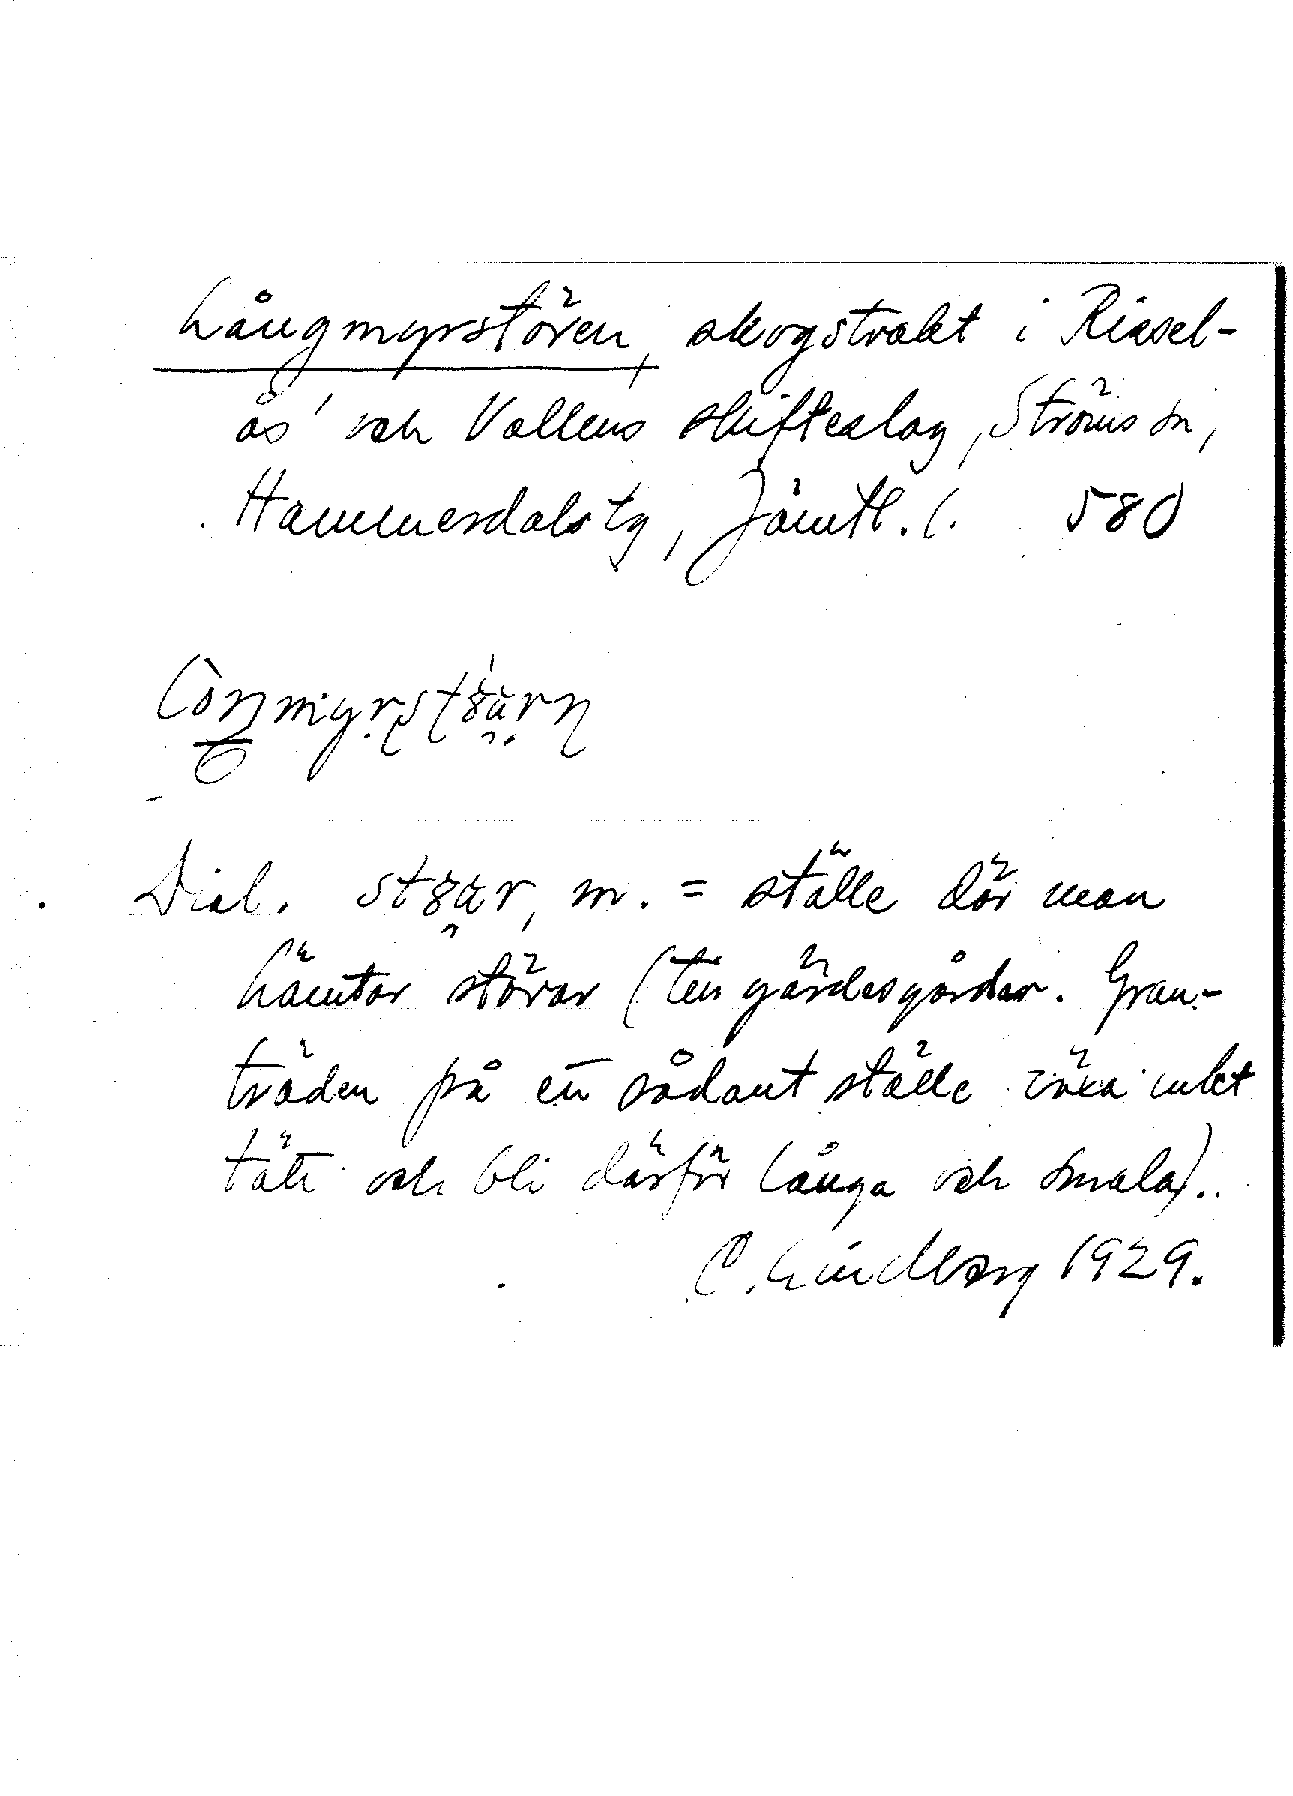 Långmyrstören, skogstrakt i Rissel-
ås och Vallens skifteslag, Ströms sn,
Hammerdals tg, Jämtl. l. 580
Dial. stȣar, m. = ställe där man
hämtar störar (till gärdesgårdar. Gran-
träden på ett sådant ställe växa mkt
tätt och bli därför långa och smala).
C. Lindberg 1929.